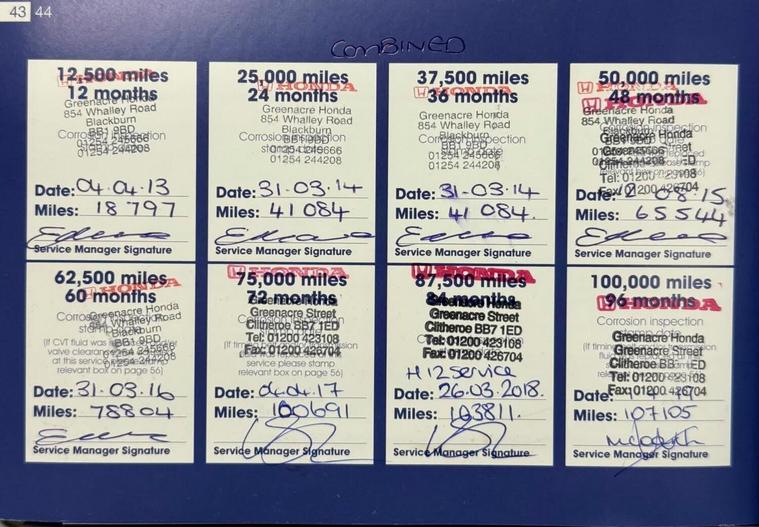 43 44
COMBINED
12,500 miles
12 months
HONDA
Greenacre Honda
854 Whalley Road
Blackburn
BB1 9BD
Corrosion inspection
01254 245666
01254 244208
Date: 04.04.13
Miles: 18797
Service Manager Signature
25,000 miles
HONDA
24 months
Greenacre Honda
854 Whalley Road
Blackburn
Corrosion inspection
BB1 9BD
stamp date
01254 245666
01254 244208
Date: 31.03.14
Miles: 41084
Service Manager Signature
37,500 miles
HONDA
36 months
Greenacre Honda
854 Whalley Road
Blackburn
Corrosion inspection
BB1 9BD
stamp date
01254 245666
01254 244208
Date: 31.03.14
Miles: 41084.
Service Manager Signature
50,000 miles
HONDA
HONDA
48 months
Greenacre Honda
854 Whalley Road
Corrosion inspection
Blackburn
Greenacre Honda
Greenacre Street
Tel: 01200 423108
Fax: 01200 426704
Date: 08.15
Miles: 65544
Service Manager Signature
62,500 miles
HONDA
60 months
Greenacre Honda
854 Whalley Road
Blackburn
BB1 9BD
(If CVT fluid was
valve clearance
01254 245666
at this service
01254 244208
relevant box on page 56)
Date: 31.03.16
Miles: 78804
Service Manager Signature
75,000 miles
HONDA
72 months
Greenacre Honda
Greenacre Street
Corrosion inspection
Clitheroe BB7 1ED
Tel: 01200 423108
Fax: 01200 426704
service please stamp
relevant box on page 56)
Date: 04.04.17
Miles: 100691
Service Manager Signature
87,500 miles
HONDA
84 months
Greenacre Honda
Greenacre Street
Clitheroe BB7 1ED
Tel: 01200 423108
Fax: 01200 426704
H12 Service
Date: 26.03.2018.
Miles: 103811.
Service Manager Signature
100,000 miles
HONDA
96 months
Corrosion inspection
stamp date
Greenacre Honda
Greenacre Street
Clitheroe BB7 1ED
Tel: 01200 423108
Fax: 01200 426704
Date:
Miles: 107105
Service Manager Signature